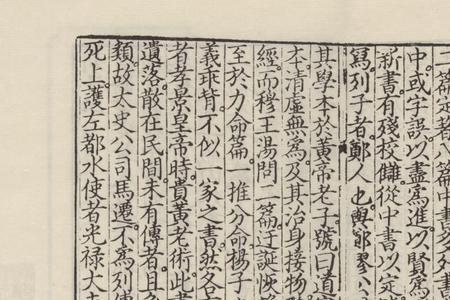 二篇定著八篇中書多外書
中或字誤以盡爲進以賢爲
新書有殘校讎從中書以定
寫列子者鄭人也與鄭繆公
其學本於黃帝老子號曰道
本清虛無爲及其治身接物
經而穆王湯問二篇迂誕恢
至於力命篇一推分命楊子
義乖背不似一家之書然各
者孝景皇帝時貴黃老術此書
遺落散在民間未有傳者且
類故太史公司馬遷不爲列傳
死上護左都水使者光祿大